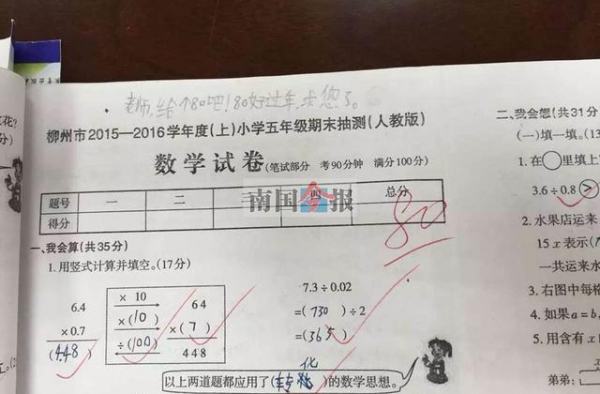 老师,给个80吧!80好过年,求您了。
柳州市2015—2016学年度(上)小学五年级期末抽测(人教版)
数学试卷(笔试部分 考90分钟 满分100分)
题号 一 二 四 总分
得分
80
南国今报
一、我会算(共35分)
1.用竖式计算并填空。(17分)
6.4
×0.7
(4.48)
× 10
×(10)
÷(100)
64
×(7)
448
7.3÷0.02
=(730)÷2
=(365)
以上两道题都应用了(转化)的数学思想。
二、我会想(共31分)
(一)填一填。(13
1.在○里填上
3.6÷0.8 >
2.水果店运来
15x表示(
一共运来水
3.右图中每格
4.如果a=b,
5.用含有x
弟弟: